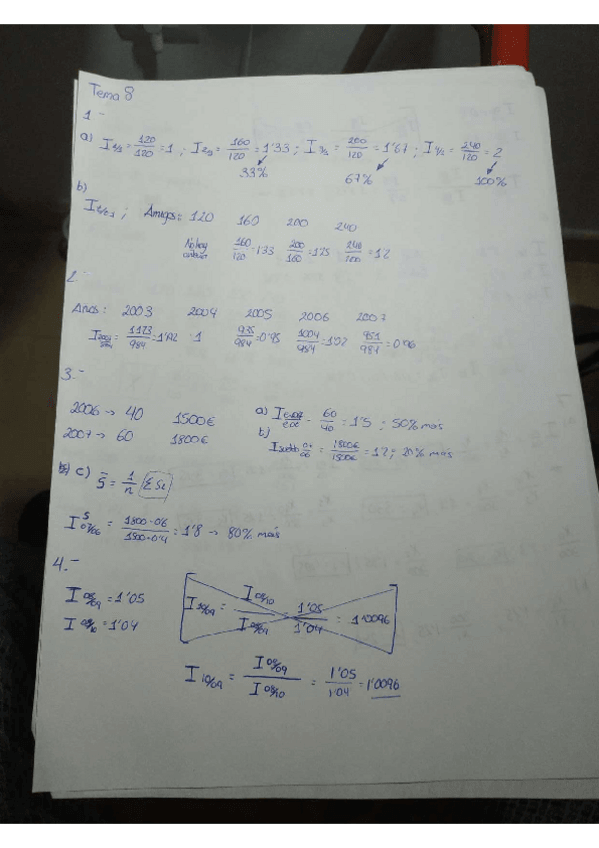 Tema 8
1-
a) I 1/1 = 120/120 = 1 ; I 2/1 = 160/120 = 1'33 ; I 3/1 = 200/120 = 1'67 ; I 4/1 = 240/120 = 2
33% 67% 100%
b)
I t/t-1 ; Amigos: 120 160 200 240
No hay 160/120 = 1'33 200/160 = 1'25 240/200 = 1'2
2.-
Años: 2003 2004 2005 2006 2007
I = 1173/984 = 1'192 1 935/984 = 0'95 1004/984 = 1'02 951/984 = 0'96
3.-
2006 → 40 1500€ a) I = 60/40 = 1'5 ; 50% más
2007 → 60 1800€ b) I sueldo 07/06 = 1800€/1500€ = 1'2 ; 20% más
c) S̄ = 1/n ΣSi
I S 07/06 = 1800·0'6/1500·0'4 = 1'8 → 80% más
4.-
I 08/09 = 1'05 I 10/09 = I 08/10 / I 08/09 = 1'05/1'04 = 1'0096
I 08/10 = 1'04
I 10/09 = I 08/09 / I 08/10 = 1'05/1'04 = 1'0096